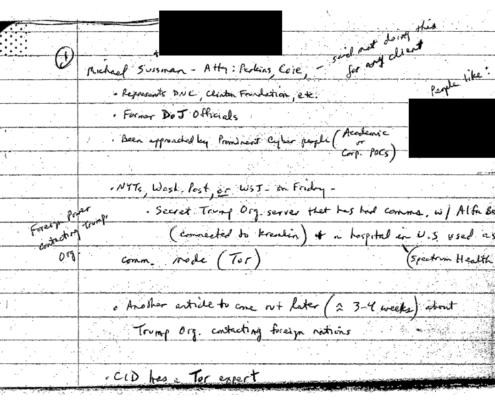 ①
Michael Sussman - Atty: Perkins, Coie, - said not doing this
for any client
• Represents DNC, Clinton Foundation, etc.
People like:
• Former DoJ Officials
• Been approached by Prominent Cyber people (Academic
or
Corp. POCs)
• NYTs, Wash. Post, or WSJ - on Friday -
Foreign Power
contacting Trump
Org.
• Secret Trump Org. server that has had comms. w/ Alfa Ba
(connected to Kremlin) + a hospital in U.S. used as
comm. node (Tor)
(Spectrum Health
• Another article to come out later (≈ 3-4 weeks) about
Trump Org. contacting foreign nations
• CID has a Tor expert